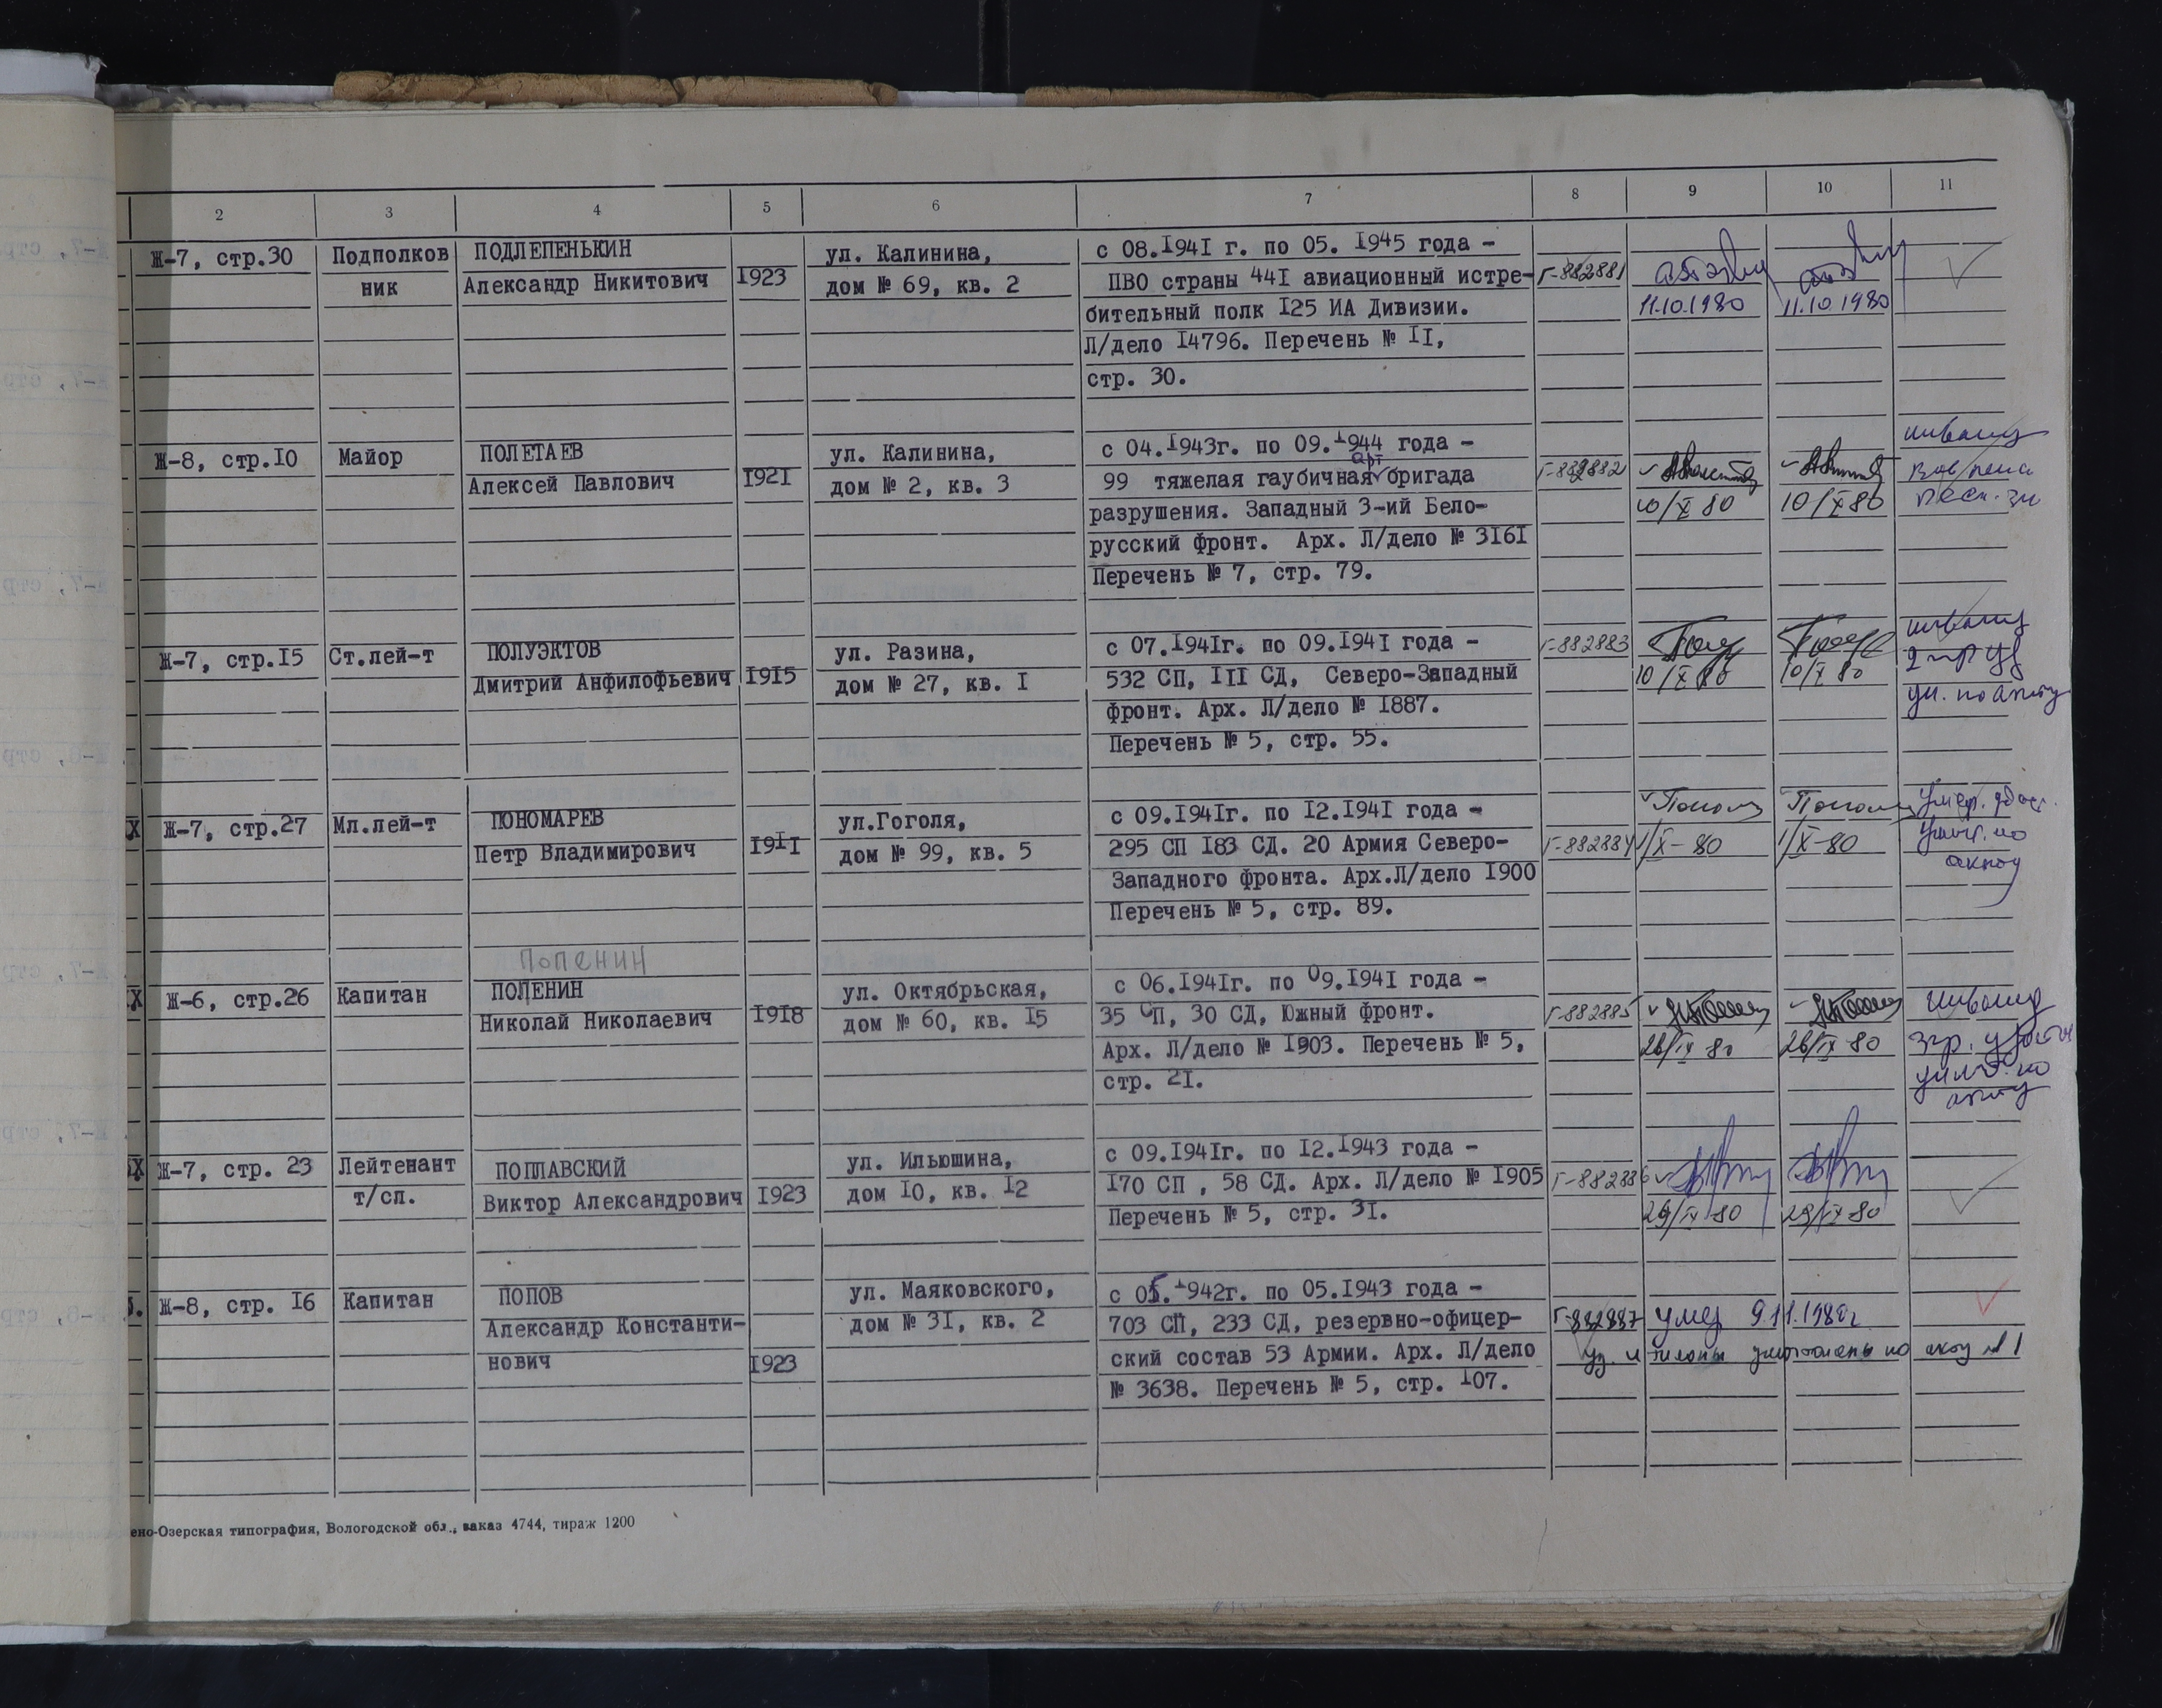 2 3 4 5 6 7 8 9 10 11
Ж-7, стр.30
Подполков
ник
ПОДЛЕПЕНЬКИН
Александр Никитович
1923
ул. Калинина,
дом № 69, кв. 2
с 08.1941 г. по 05. 1945 года -
ПВО страны 441 авиационный истре-
бительный полк 125 ИА Дивизии.
Л/дело 14796. Перечень № 11,
стр. 30.
Г-882881
11.10.1980
11.10.1980
Ж-8, стр.10
Майор
ПОЛЕТАЕВ
Алексей Павлович
1921
ул. Калинина,
дом № 2, кв. 3
с 04.1943г. по 09.1944 года -
арт
99 тяжелая гаубичная бригада
разрушения. Западный 3-ий Бело-
русский фронт. Арх. Л/дело № 3161
Перечень № 7, стр. 79.
Г-882882
10/X 80
10/X 80
Ж-7, стр.15
Ст.лей-т
ПОЛУЭКТОВ
Дмитрий Анфилофьевич
1915
ул. Разина,
дом № 27, кв. 1
с 07.1941г. по 09.1941 года -
532 СП, 111 СД, Северо-Западный
фронт. Арх. Л/дело № 1887.
Перечень № 5, стр. 55.
Г-882883
10/X 80
10/X 80
Х
Ж-7, стр.27
Мл.лей-т
ПОНОМАРЕВ
Петр Владимирович
1911
ул.Гоголя,
дом № 99, кв. 5
с 09.1941г. по 12.1941 года -
295 СП 183 СД. 20 Армия Северо-
Западного фронта. Арх.Л/дело 1900
Перечень № 5, стр. 89.
Г-882884
1/X-80
1/X-80
Х
Ж-6, стр.26
Капитан
ПОПЕНИН
ПОЛЕНИН
Николай Николаевич
1918
ул. Октябрьская,
дом № 60, кв. 15
с 06.1941г. по 09.1941 года -
35 СП, 30 СД, Южный фронт.
Арх. Л/дело № 1903. Перечень № 5,
стр. 21.
Г-882885
26/IX 80
26/IX 80
Х
Ж-7, стр. 23
Лейтенант
т/сп.
ПОПЛАВСКИЙ
Виктор Александрович
1923
ул. Ильюшина,
дом 10, кв. 12
с 09.1941г. по 12.1943 года -
170 СП , 58 СД. Арх. Л/дело № 1905
Перечень № 5, стр. 31.
Г-882886
29/IX 80
29/IX 80
Ж-8, стр. 16
Капитан
ПОПОВ
Александр Константи-
нович
1923
ул. Маяковского,
дом № 31, кв. 2
с 05.1942г. по 05.1943 года -
703 СП, 233 СД, резервно-офицер-
ский состав 53 Армии. Арх. Л/дело
№ 3638. Перечень № 5, стр. 107.
Г-882887
умер 9.11.1980г.
уд. и талоны уничтожены по акту № 1
ено-Озерская типография, Вологодской обл., заказ 4744, тираж 1200